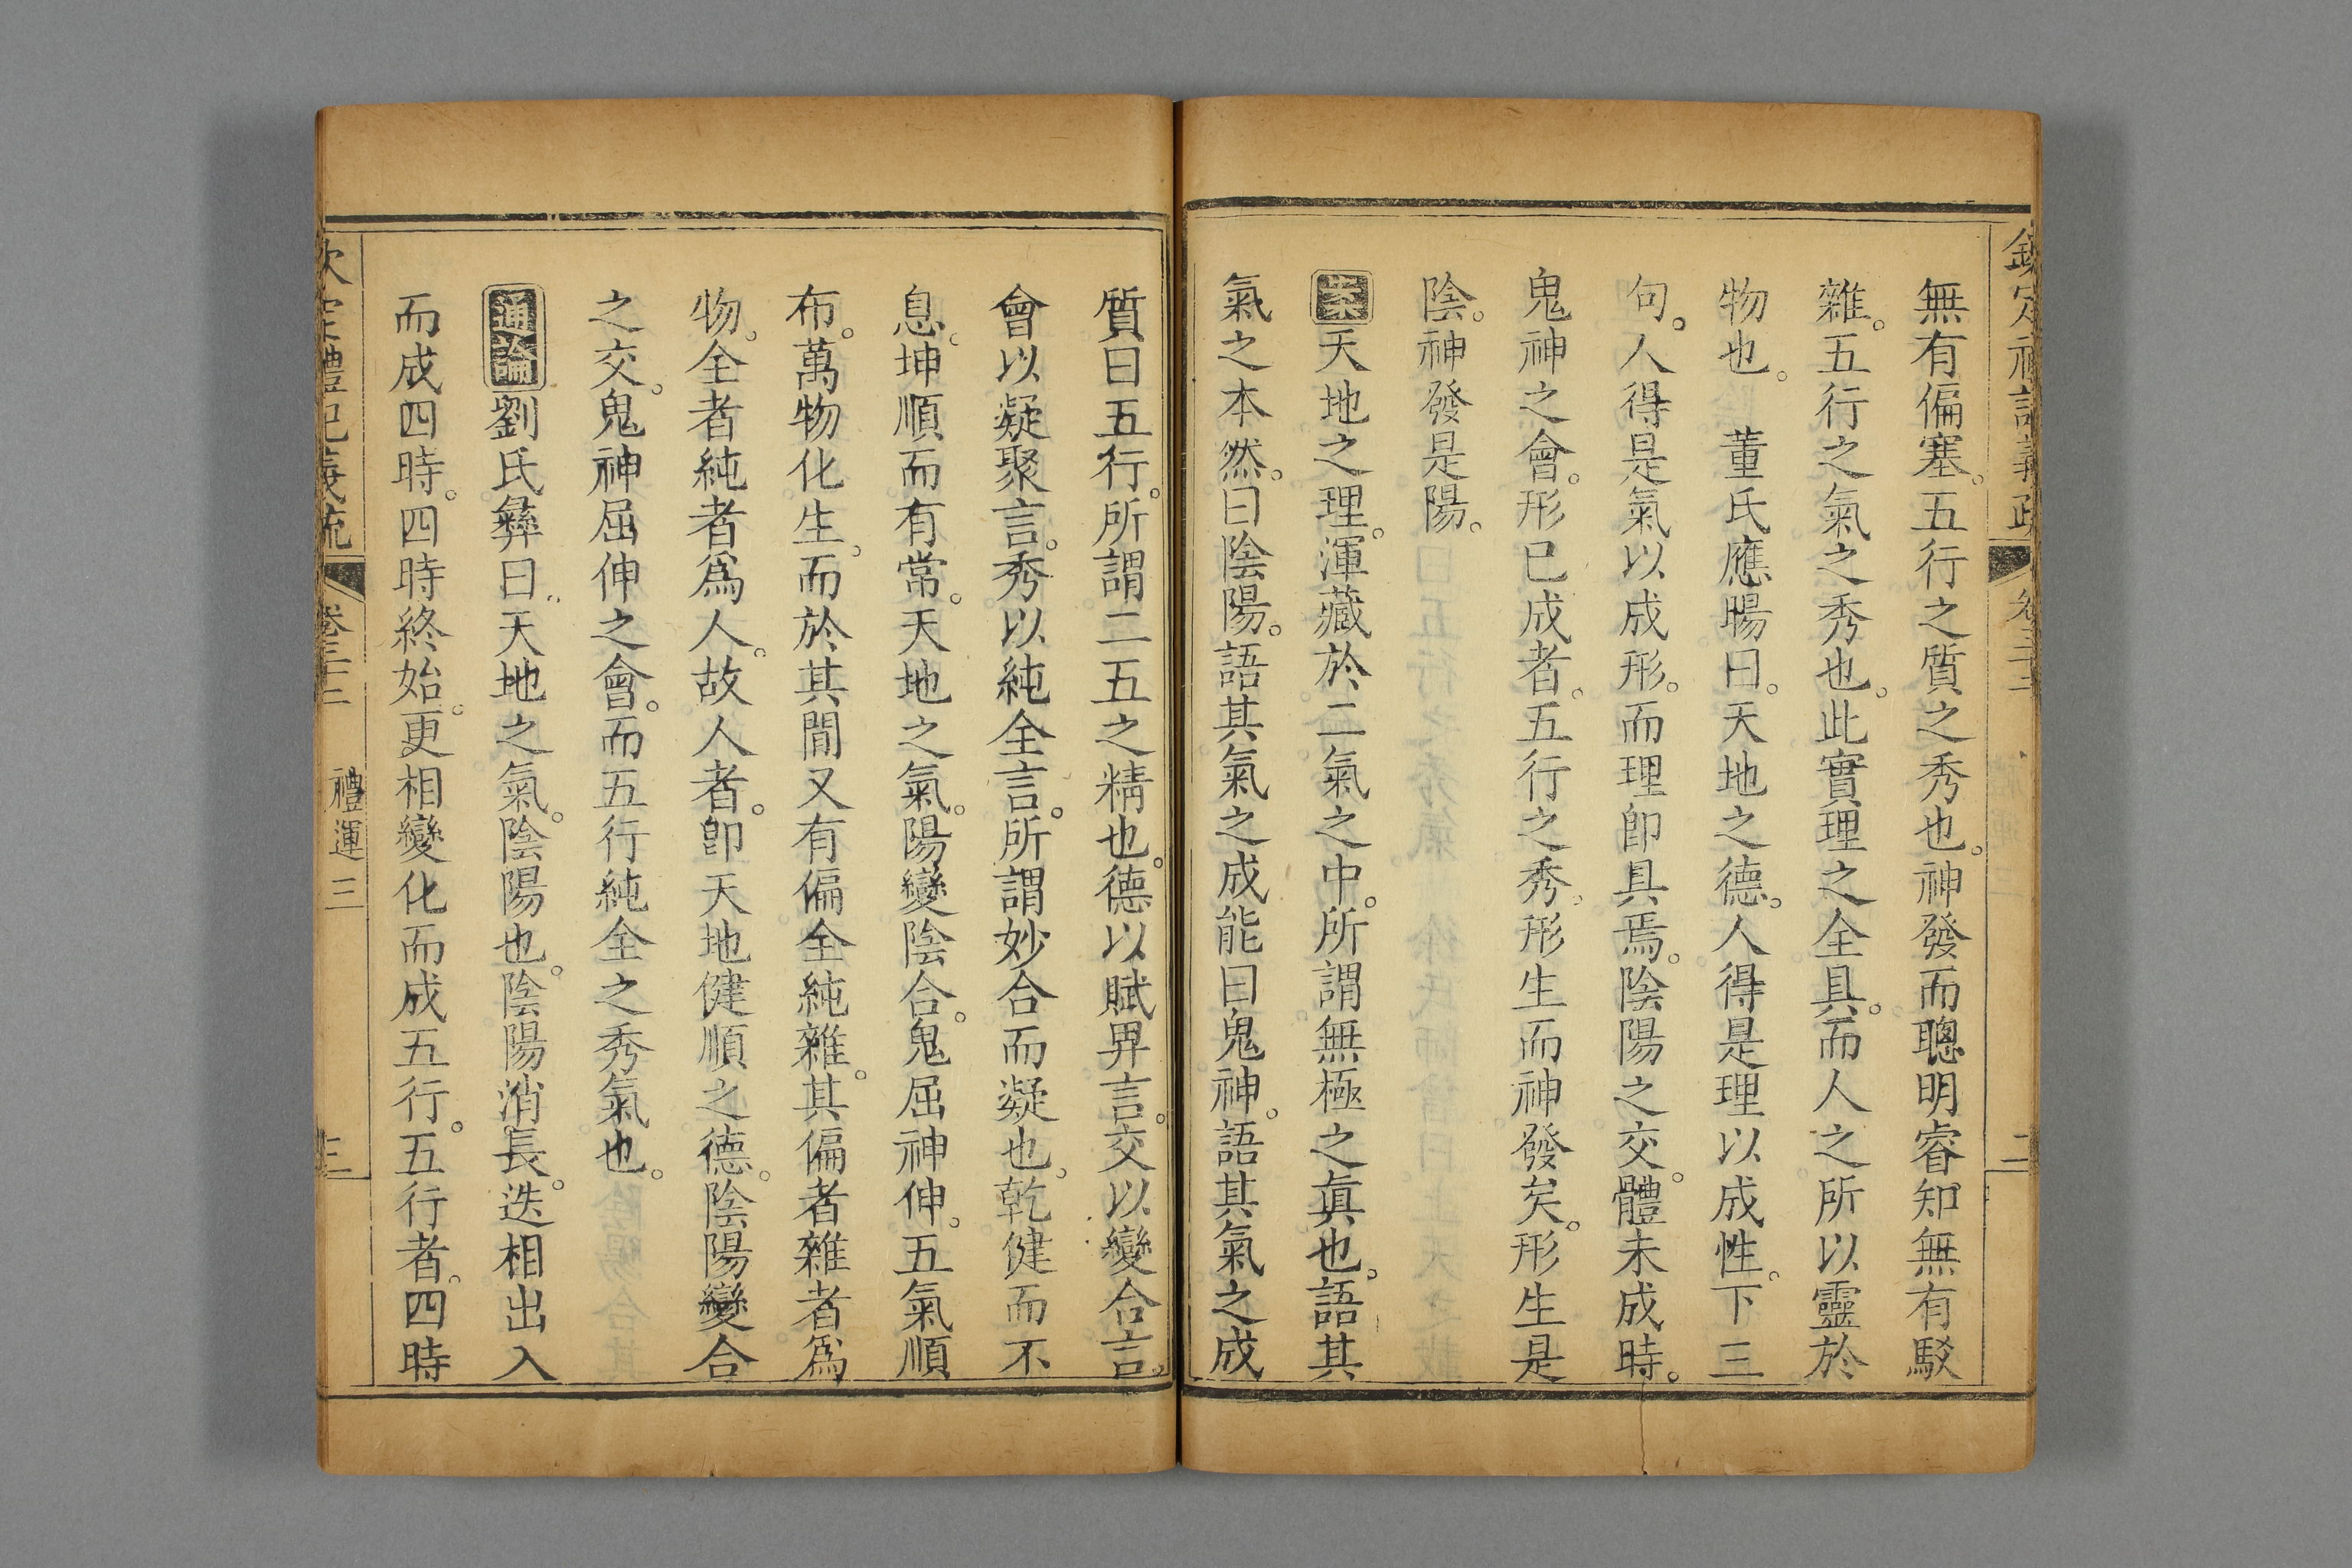 欽定禮記義疏 卷三十二 二
無有偏塞。五行之質之秀也。神發而聰明睿知無有駁
雜。五行之氣之秀也。此實理之全具。而人之所以靈於
物也。 董氏應暘曰。天地之德。人得是理以成性。下三
句。人得是氣以成形。而理卽具焉。陰陽之交。體未成時。
鬼神之會。形已成者。五行之秀。形生而神發矣。形生是
陰。神發是陽。
案天地之理。渾藏於二氣之中。所謂無極之眞也。語其
氣之本然。曰陰陽。語其氣之成能曰鬼神。語其氣之成
質曰五行。所謂二五之精也。德以賦畀言。交以變合言。
會以凝聚言。秀以純全言。所謂妙合而凝也。乾健而不
息。坤順而有常。天地之氣。陽變陰合。鬼屈神伸。五氣順
布。萬物化生。而於其閒又有偏全純雜。其偏者雜者爲
物。全者純者爲人。故人者。卽天地健順之德。陰陽變合
之交。鬼神屈伸之會。而五行純全之秀氣也。
通論劉氏彝曰。天地之氣。陰陽也。陰陽消長。迭相出入
而成四時。四時終始。更相變化而成五行。五行者。四時
欽定禮記義疏 卷三十二 禮運三 三